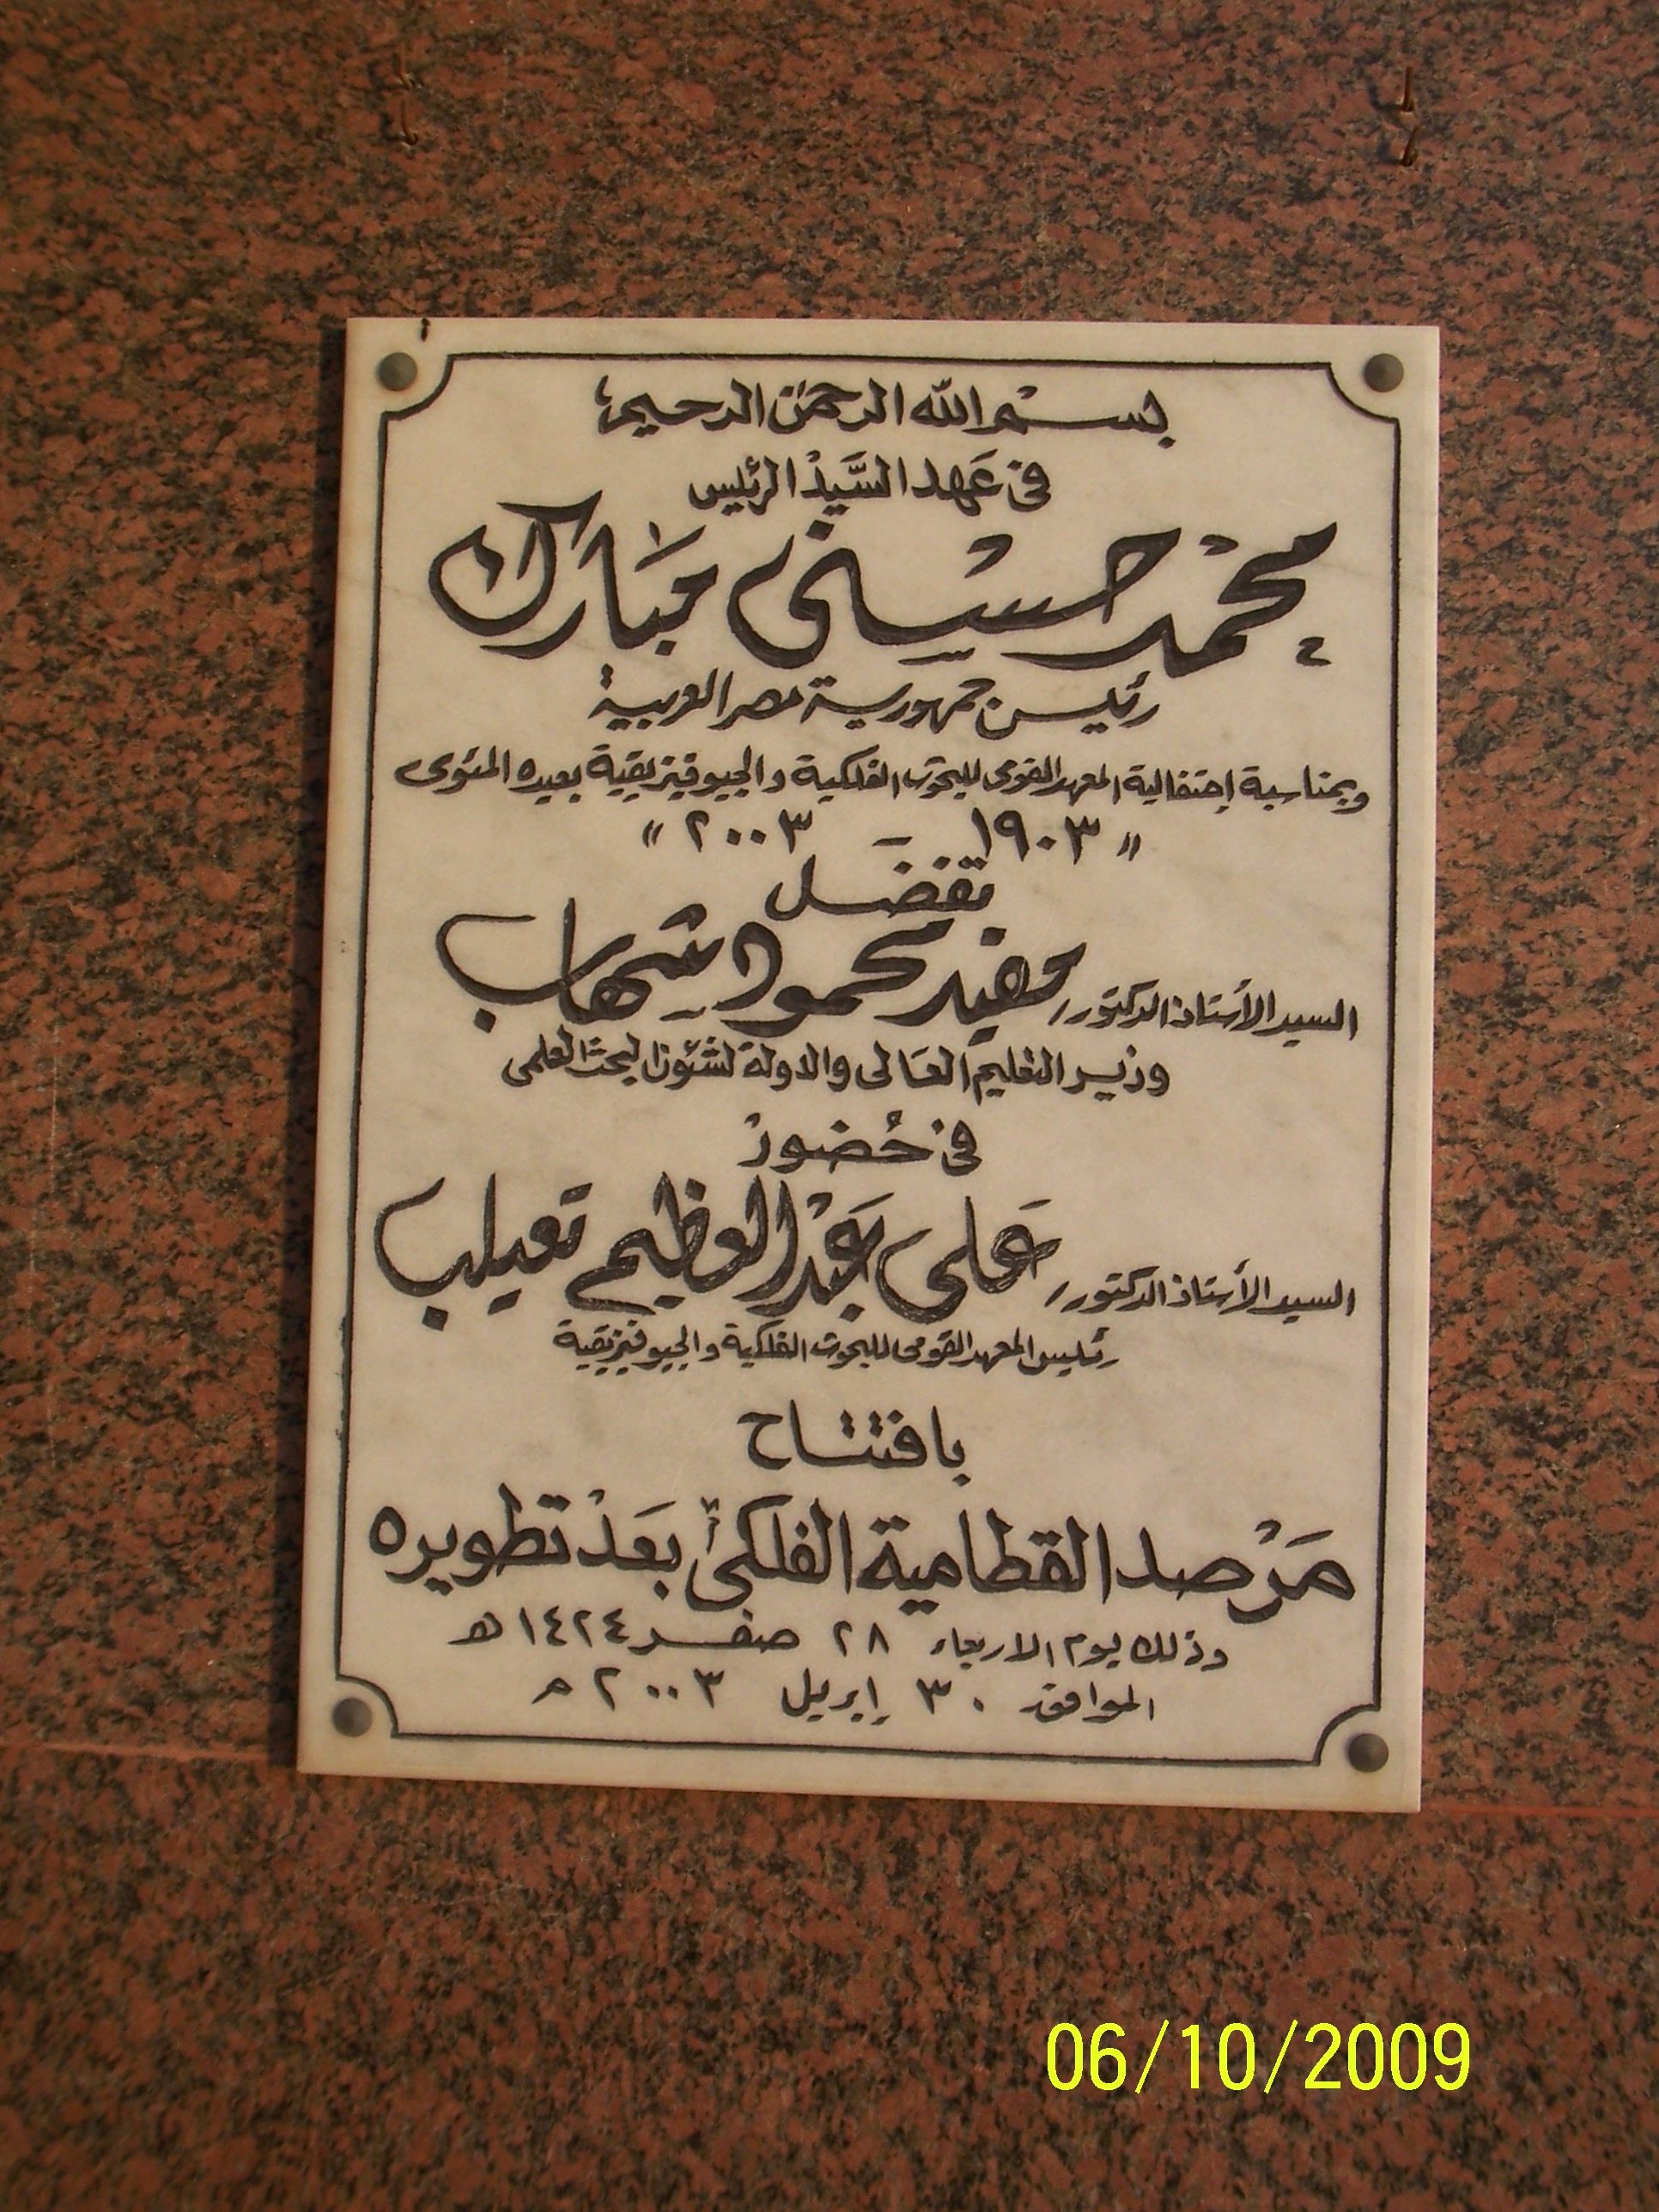 بسم الله الرحمن الرحيم
فى عهد السيد الرئيس
محمد حسنى مبارك
رئيس جمهورية مصر العربية
وبمناسبة إحتفالية المعهد القومى للبحوث الفلكية والجيوفيزيقية بعيده المئوى
" ١٩٠٣ - ٢٠٠٣ "
تفضل
السيد الأستاذ الدكتور/ مفيد محمود شهاب
وزير التعليم العالى والدولة لشئون البحث العلمى
فى حضور
السيد الأستاذ الدكتور/ على عبد العظيم تعيلب
رئيس المعهد القومى للبحوث الفلكية والجيوفيزيقية
بافتتاح
مرصد القطامية الفلكى بعد تطويره
وذلك يوم الاربعاء ٢٨ صفر ١٤٢٤ هـ
الموافق ٣٠ إبريل ٢٠٠٣ م
06/10/2009